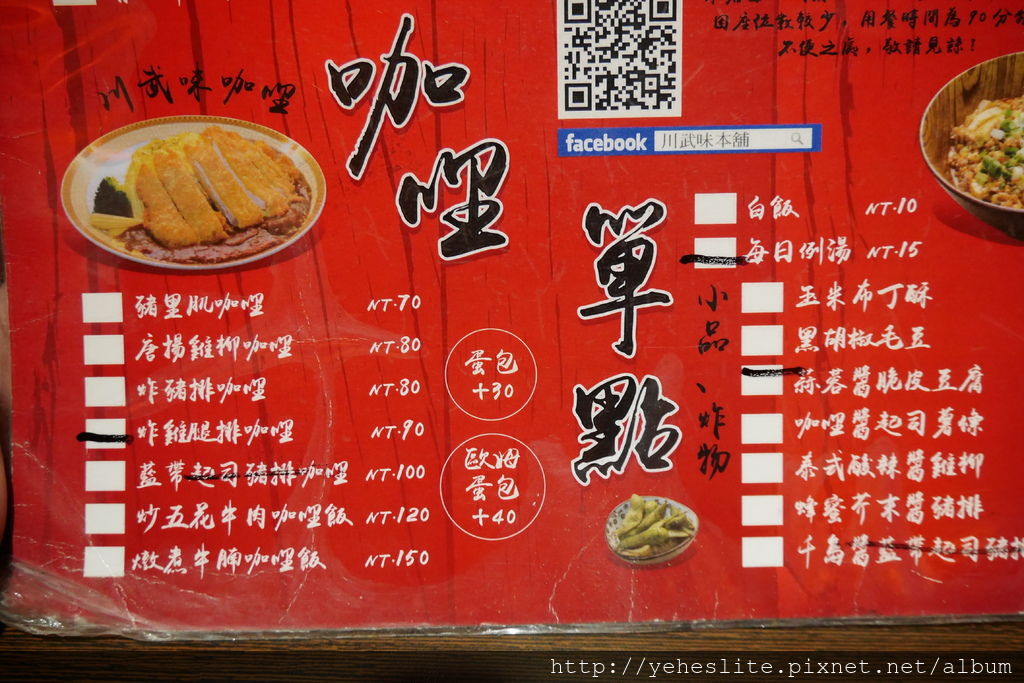 因座位數較少，用餐時間為90分
不便之處，敬請見諒！
川武味咖哩
咖哩
facebook 川武味本舖
豬里肌咖哩 NT.70
唐揚雞柳咖哩 NT.80
炸豬排咖哩 NT.80
炸雞腿排咖哩 NT.90
藍帶起司豬排咖哩 NT.100
炒五花牛肉咖哩飯 NT.120
燉煮牛腩咖哩飯 NT.150
蛋包
+30
歐姆
蛋包
+40
單點
白飯 NT.10
每日例湯 NT.15
小品、炸物
玉米布丁酥
黑胡椒毛豆
蒜蓉醬脆皮豆腐
咖哩醬起司薯條
泰式酸辣醬雞柳
蜂蜜芥末醬豬排
千島醬藍帶起司豬排
http://yeheslite.pixnet.net/album